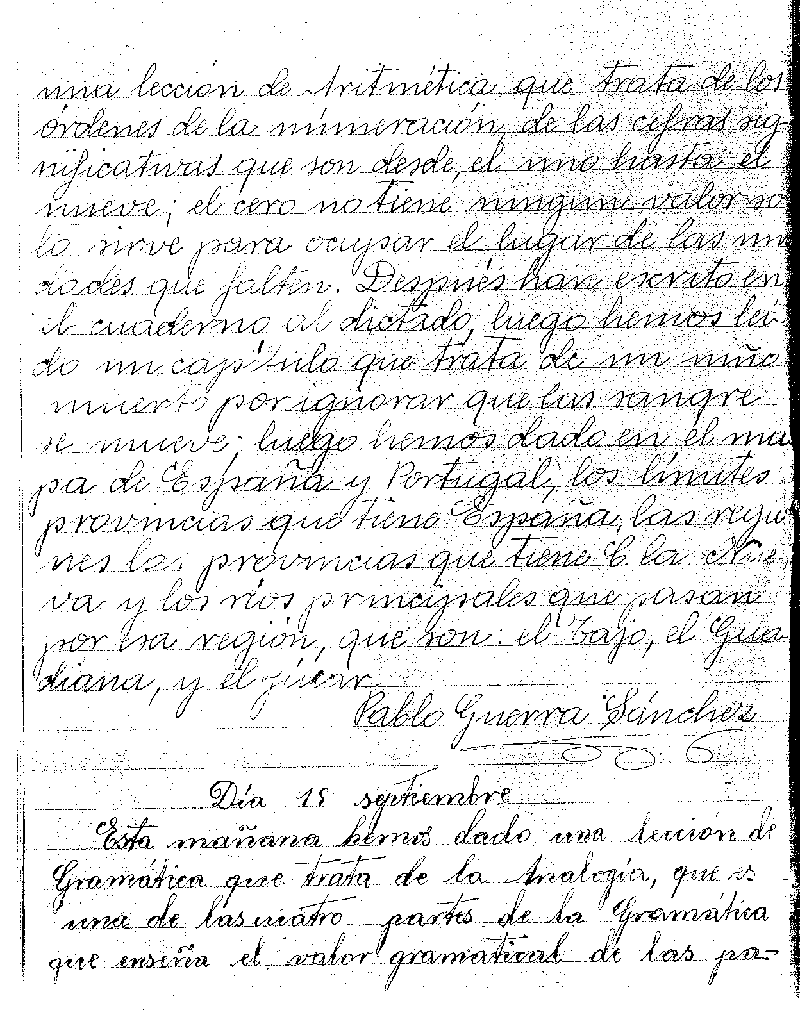 una lección de Aritmética que trata de los
órdenes de la numeración, de las cifras sig-
nificativas que son desde, el uno hasta el
nueve; el cero no tiene ningun valor so
lo sirve para ocupar el lugar de las uni
dades que falten. Después han escrito en
el cuaderno al dictado, luego hemos leí-
do un capítulo que trata de un niño
muerto por ignorar que las sangre
se mueve; luego hemos dado en el ma
pa de España y Portugal, los límites
provincias que tiene España, las regio
nes las provincias que tiene C. la Nue
va y los ríos principales que pasan
por esa región, que son: el Tajo, el Gua
diana, y el júcar.
Pablo Guerra Sánchez
Día 15 septiembre
Esta mañana hemos dado una lección de
Gramática que trata de la Analogía, que es
una de las cuatro partes de la Gramática
que enseña el valor gramatical de las pa-